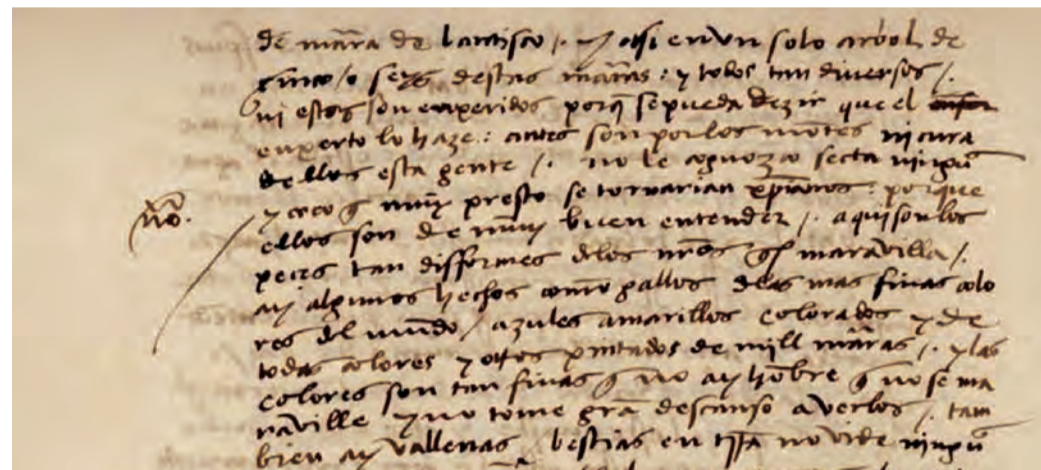 de mãra de lantisco /. y asi en vn solo arbol de
çinco /o seys destas mãras : y todos tan diversos /.
ni estos son enxeridos porq̃ se pueda dezir que el
enxerto lo haze : antes son por los mõtes ni cura
dellos esta gente /. no le cognozco secta ningũa
y creo q̃ muy presto se tornarian xp̃ianos : porque
nõ.
ellos son de muy buen entender /. aqui son los
peces tan disformes delos nr̃os q̃s maravilla /.
ay algunos hechos como gallos delas mas finas colo
res del mundo / azules amarillos colorados y de
todas colores y otros pintados de mill mãras /. y las
colores son tan finas q̃ no ay hõbre q̃ no se ma
raville y no tome grã descanso a verlos /. tam
bien ay vallenas / bestias en trr̃a no vide ningũa